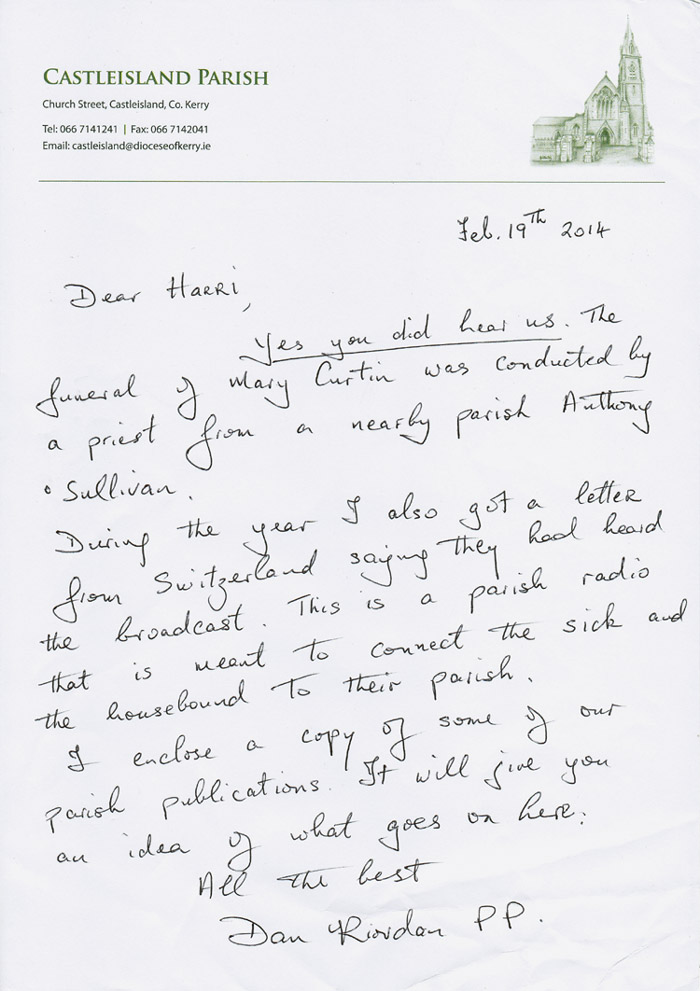 CASTLEISLAND PARISH
Church Street, Castleisland, Co. Kerry
Tel: 066 7141241 | Fax: 066 7142041
Email: castleisland@dioceseofkerry.ie
Feb. 19th 2014
Dear HARRI,
Yes you did hear us. The
funeral of Mary Curtin was conducted by
a priest from a nearby parish Anthony
o Sullivan.
During the year I also got a letter
from Switzerland saying they had heard
the broadcast. This is a parish radio
that is meant to connect the sick and
the housebound to their parish.
I enclose a copy of some of our
parish publications. It will give you
an idea of what goes on here.
All the best
Dan Riordan PP.